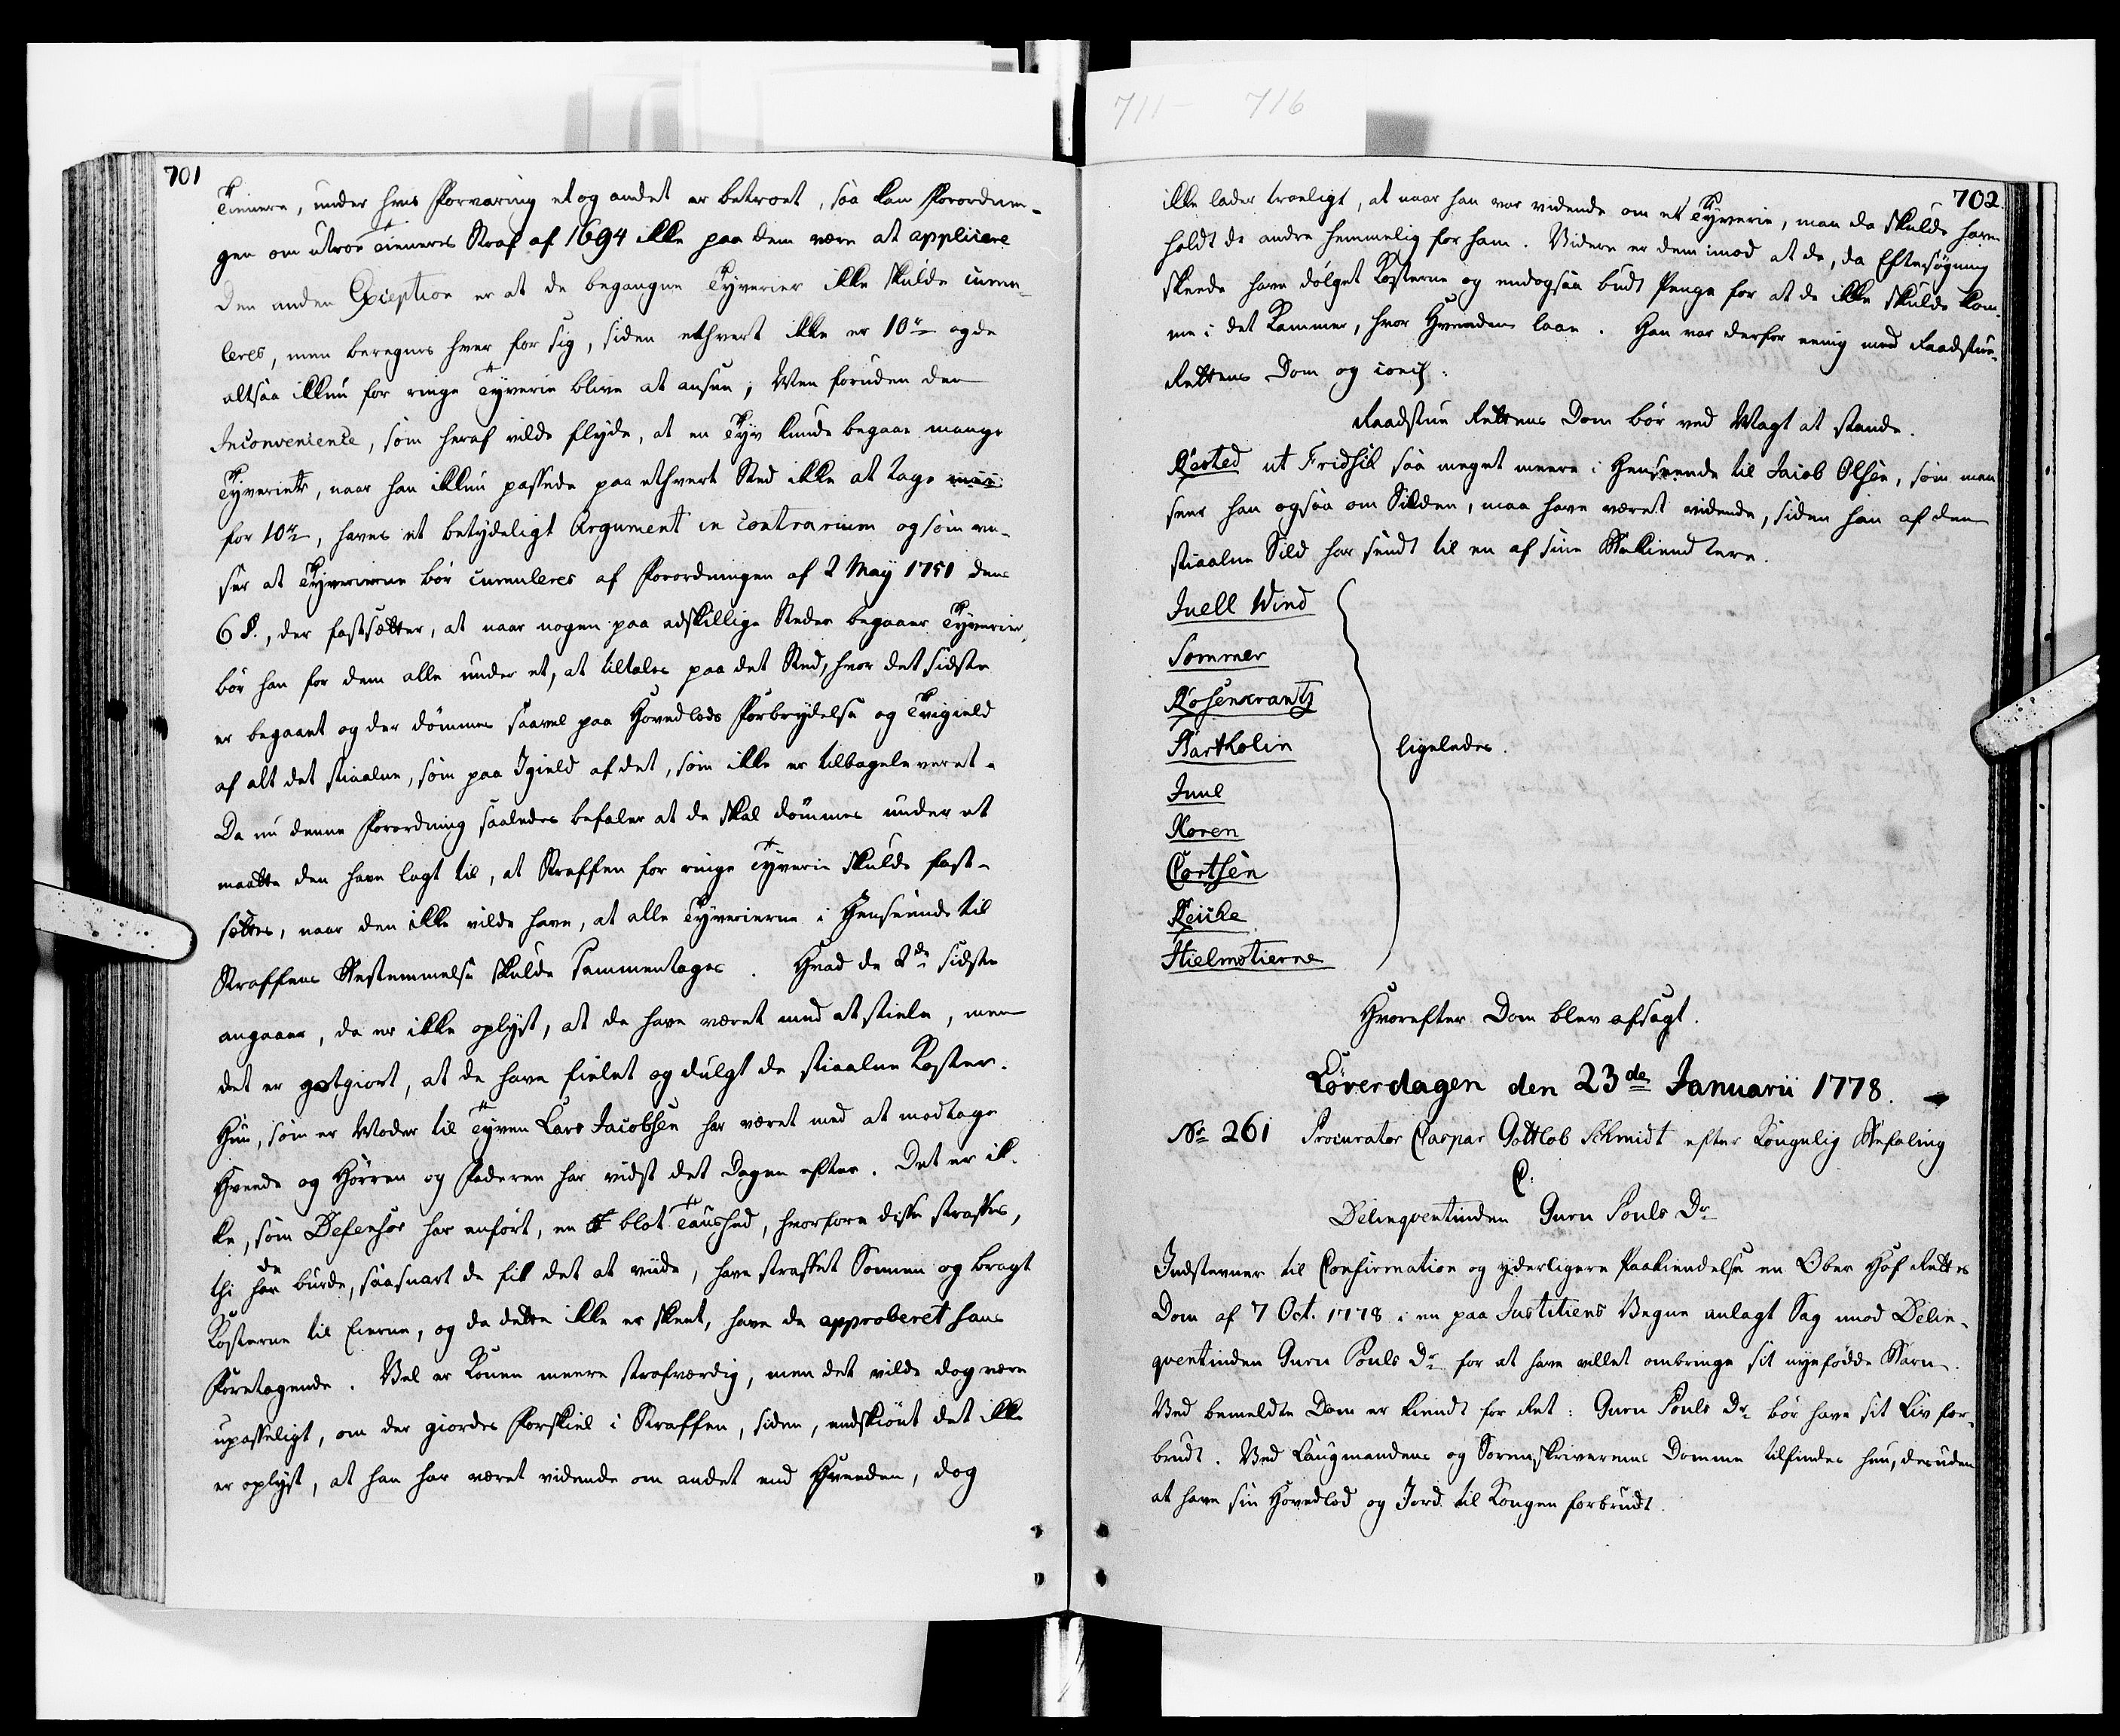 711- 716
701
Tienere, under hvis Forvaring et og andet er betroet, saa kan Forordnin-
gen om utroe Tieneres Straf af 1694 ikke paa dem være at applicere
Den anden Exception er at de begangne Tyverier ikke skulde cumu-
leres, men beregnes hver for sig, siden ethvert ikke er 10 rd og de
altsaa ikkun for ringe Tyverie blive at ansee; Men foruden den
Inconvenience, som heraf vilde flyde, at en Tyv kunde begaae mange
Tyverier, naar han ikkun passede paa ethvert Sted ikke at tage
for 10 rd, haves et betydeligt Argument in contrarium og som vi-
ser at Tyverierne bør cumuleres af Forordningen af 2 May 1751 dens
6 §., der fastsætter, at naar nogen paa adskillige Steder begaaer Tyverier,
bør han for dem alle under et, at tiltales paa det Sted, hvor det sidste
er begaaet og der dømmes saavel paa Hovedlods Forbrydelse og Tvigield
af alt det stiaalne, som paa Igield af det, som ikke er tilbageleveret.
Da nu denne Forordning saaledes befaler at de skal dømmes under et
maatte den have lagt til, at Straffen for ringe Tyverie skulde fast-
sættes, naar den ikke vilde have, at alle Tyverierne i Henseende til
Straffens Bestemmelse skulde sammentages. Hvad de 2de sidste
angaaer, da er ikke oplyst, at de have været med at stiele, men
det er gotgiort, at de have hielet og dulgt de stiaalne Koster.
Hun, som er Moder til Tyven Lars Jacobsen har været med at modtage
Hveede og Hørren og Faderen har vidst det Dagen efter. Det er ik-
ke, som Defensor har anført, en blot Taushed, hvorfore disse straffes,
thi de burde, saasnart de fik det at viide, have straffet Sønnen og bragt
Kosterne til Eierne, og da dette ikke er skeet, have de approberet hans
Foretagende. Vel er Konen meere strafværdig, men det vilde dog være
upasseligt, om der giordes Forskiel i Straffen, siden, endskiønt det ikke
er oplyst, at han har været vidende om andet end Hveeden, dog
702.
ikke lader troeligt, at naar han var vidende om et Tyverie, man da skulde have
holdt de andre hemmelig for ham. Videre er dem imod at de, da Eftersøgning
skeede have dølget Kosterne og endogsaa budt Penge for at de ikke skulde kom-
me i det Kammer, hvor Hveeden laae. Han var derfor eenig med Raadstue-
Rettens Dom og conch:
Raadstue Rettens Dom bør ved Magt at stande.
Rested ut Fridsch saa meget meere i Henseende til Jacob Olsen, som man
seer han ogsaa om Silden, maa have været vidende, siden han af den
stiaalne Sild har sendt til en af sine Bekiendtere.
Juell Wind
Sommer
Rosenkrantz
Bartholin
Juul
Koren
Cortsen
Reiche
Hielmstierne
ligeledes.
Hvorefter Dom blev afsagt.
Løverdagen den 23de Januarii 1778.
No 261 Procurator Caspar Gottlob Schmidt efter Kongelig Befaling
C:
Delinqventinden Guru Pouls Dr
Indstevner til Confirmation og yderligere Paakiendelse en Ober Hof Rettes
Dom af 7 Oct. 1778 i en paa Justitiens Vegne anlagt Sag imod Delin-
qventinden Guru Pouls Dr for at have villet ombringe sit nyefødde Barn.
Ved bemeldte Dom er kiendt for Ret: Guru Pouls Dr bør have sit Liv for-
brudt. Ved Laugmandens og Sorenskriverens Domme tilfindes hun, desuden
at have sin Hovedlod og Jord til Kongen forbrudt.